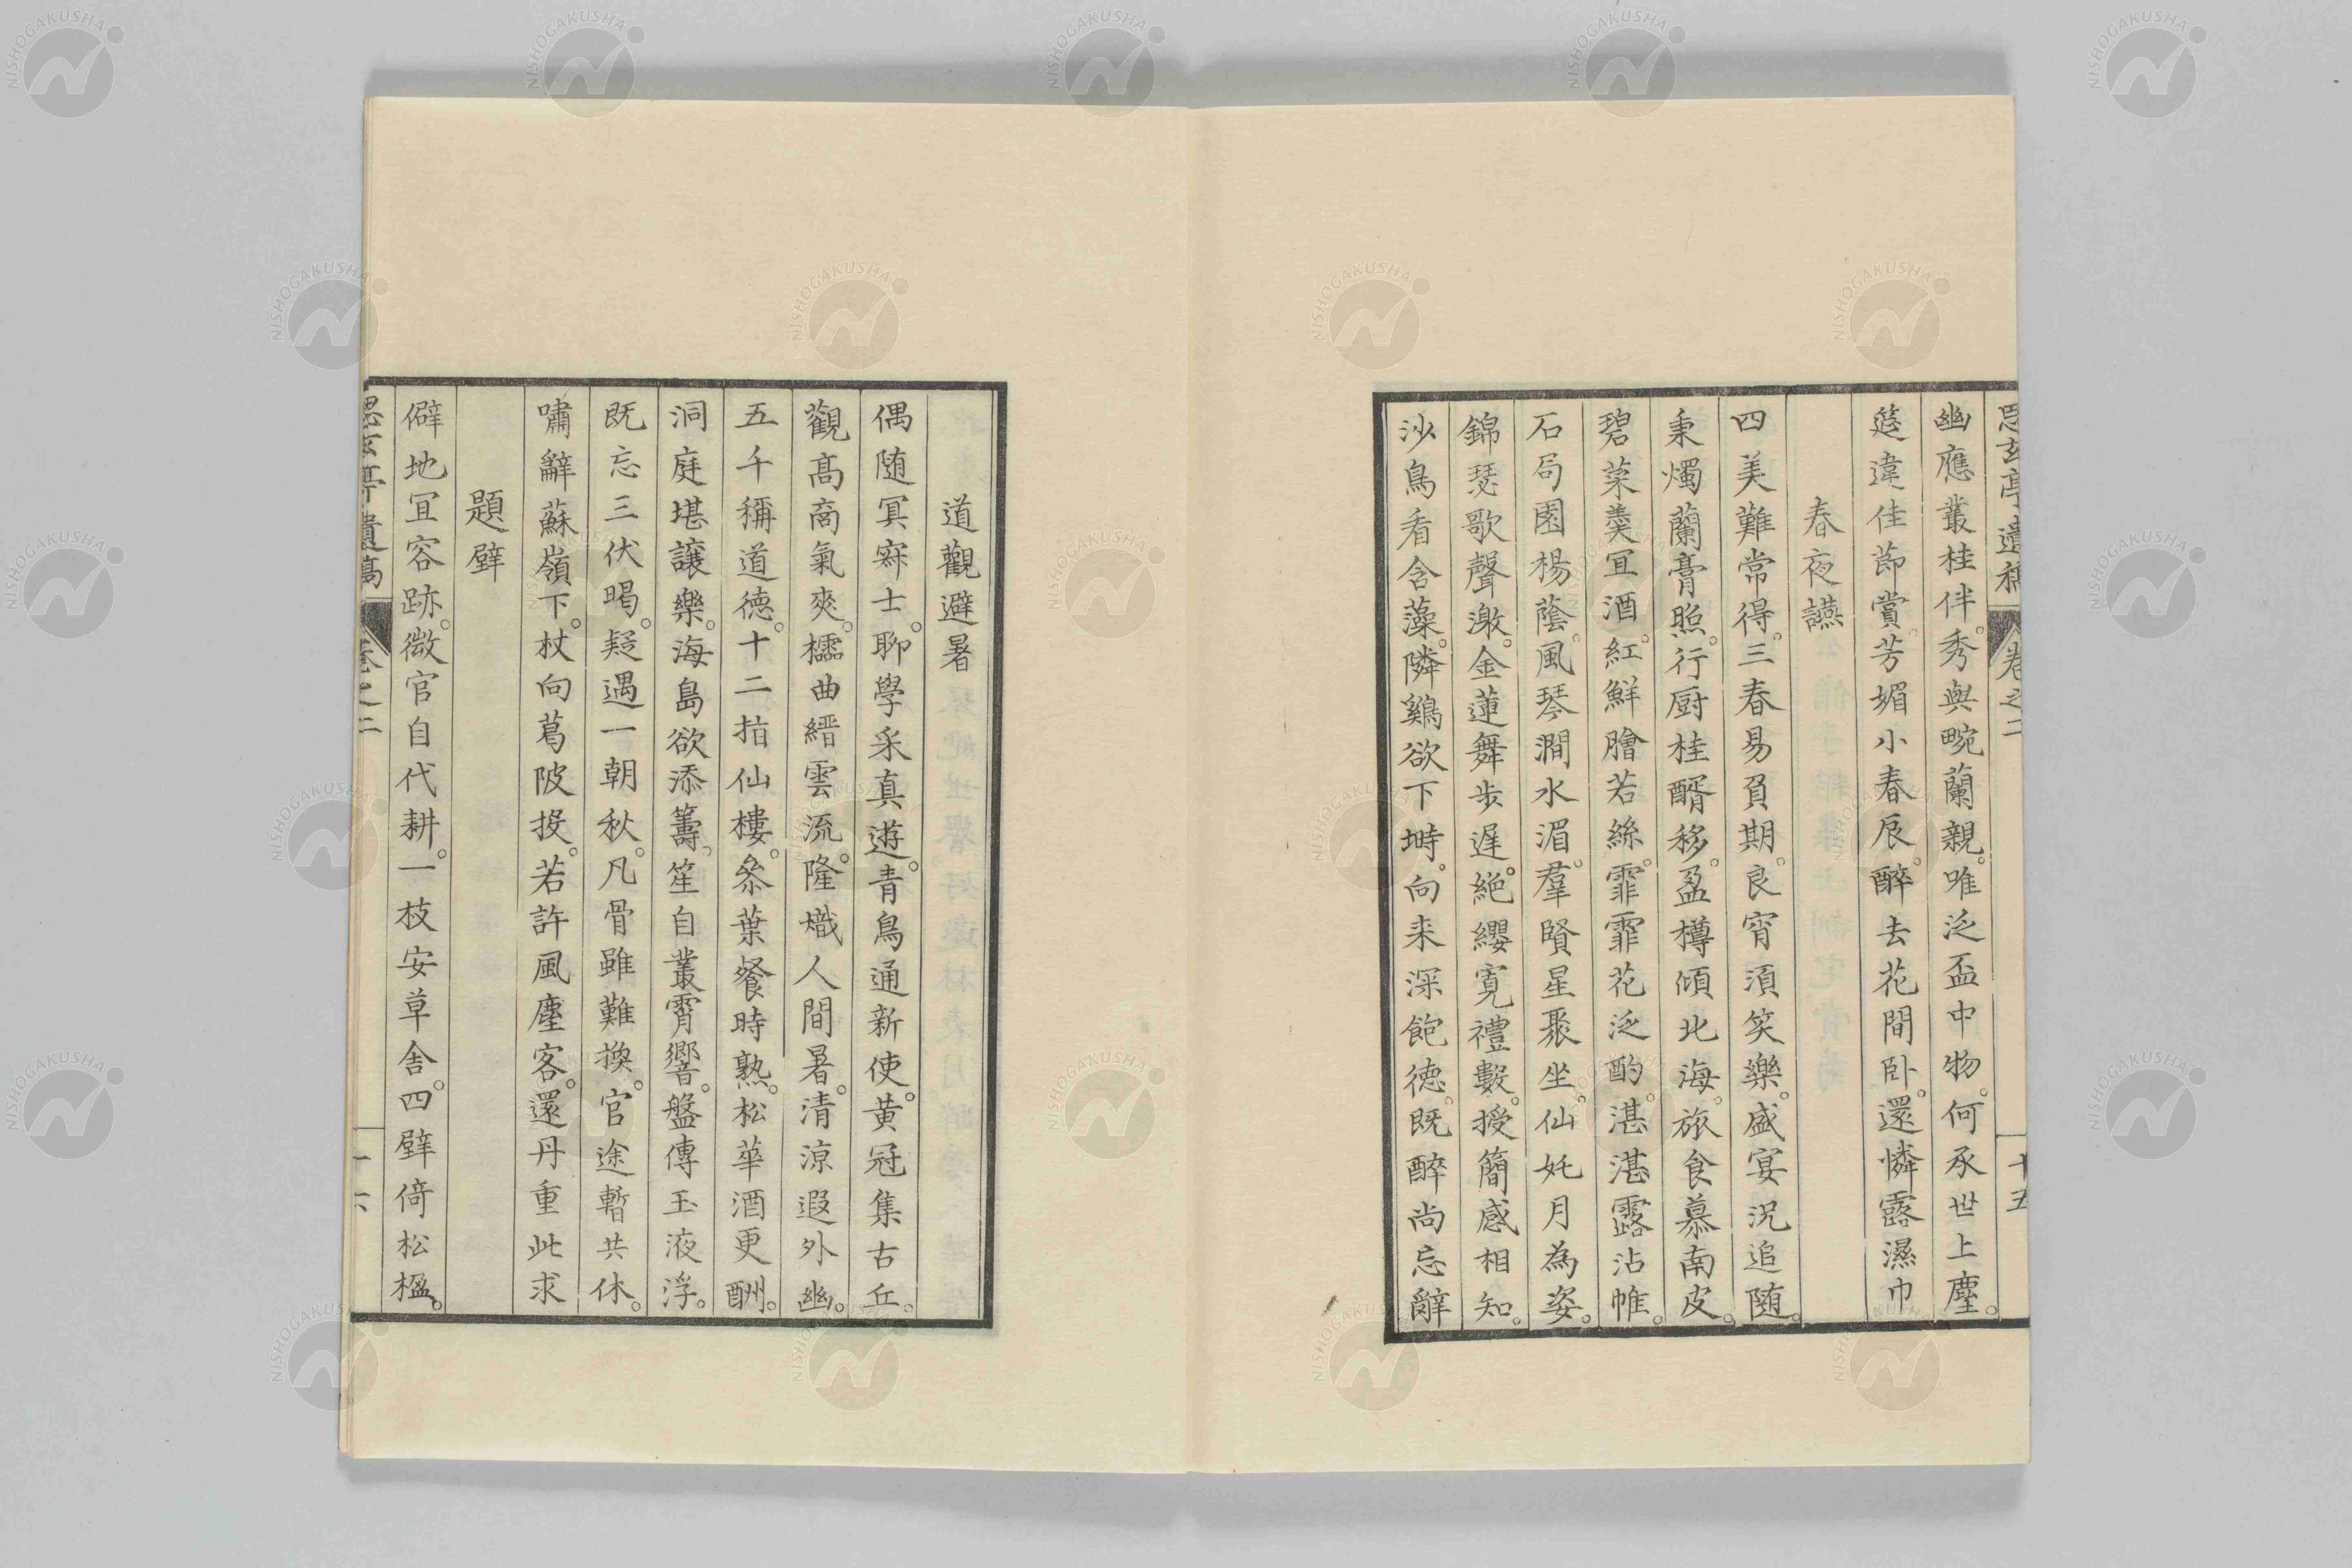 思玄亭遺稿 卷之二 十五
幽應叢桂伴。秀與畹蘭親。唯泛盃中物。何承世上塵。
筵違佳節賞。芳媚小春辰。醉去花間臥。還憐露濕巾
春夜讌
四美難常得。三春易負期。良宵須笑樂。盛宴況追随。
秉燭蘭膏照。行厨桂醑移。盈樽傾北海。旅食慕南皮。
碧菜羮宜酒。紅鮮膾若絲。霏霏花泛酌。湛湛露沾帷。
石局園楊蔭。風琴澗水湄。羣賢星聚坐。仙奼月為姿。
錦瑟歌聲激。金蓮舞步遅。絕纓寬禮數。授簡感相知。
沙鳥看含藻。隣鷄欲下塒。向来深飽德。既醉尚忘辭
道觀避暑
偶随冥寂士。聊學采真遊。青鳥通新使。黄冠集古丘。
觀髙商氣爽。櫺曲縉雲流。隆熾人間暑。清涼遐外幽。
五千稱道德。十二拍仙樓。粂葉餐時熟。松華酒更酬。
洞庭堪讓樂。海島欲添籌。笙自叢霄響。盤傳玉液浮。
既忘三伏暍。疑遇一朝秋。凡骨雖難換。官途暫共休。
嘯辭蘇嶺下。杖向葛陂投。若許風塵客。還丹重此求
題壁
僻地宜容跡。微官自代耕。一枝安草舎。四壁倚松楹。
思玄亭遺藁 卷之二 十六
NISHOGAKUSHA